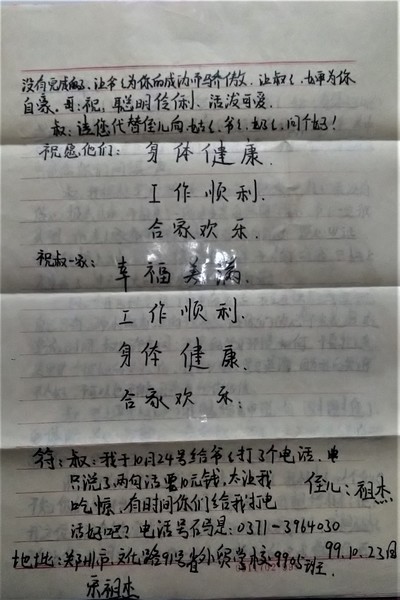 没有完成的, 让爷爷为你的成功而骄傲. 让叔叔, 婶为你
自豪. 哥: 祝, 聪明伶俐、活泼可爱.
叔: 请您代替侄儿向姑姑, 爷爷, 奶奶, 问个好!
祝愿他们: 身体健康.
工作顺利.
合家欢乐.
祝叔一家: 幸福美满.
工作顺利.
身体健康.
合家欢乐:
符: 叔: 我于10月24号给爷爷打了个电话. 电
只说了两句话要10元钱, 太让我
吃惊, 有时间你们给我打电
侄儿: 祖杰
话好吧? 电话号码是: 0371-3964030
99.10.23日
地址: 郑州市文化路91号省外贸学校9905班.
乐祖杰